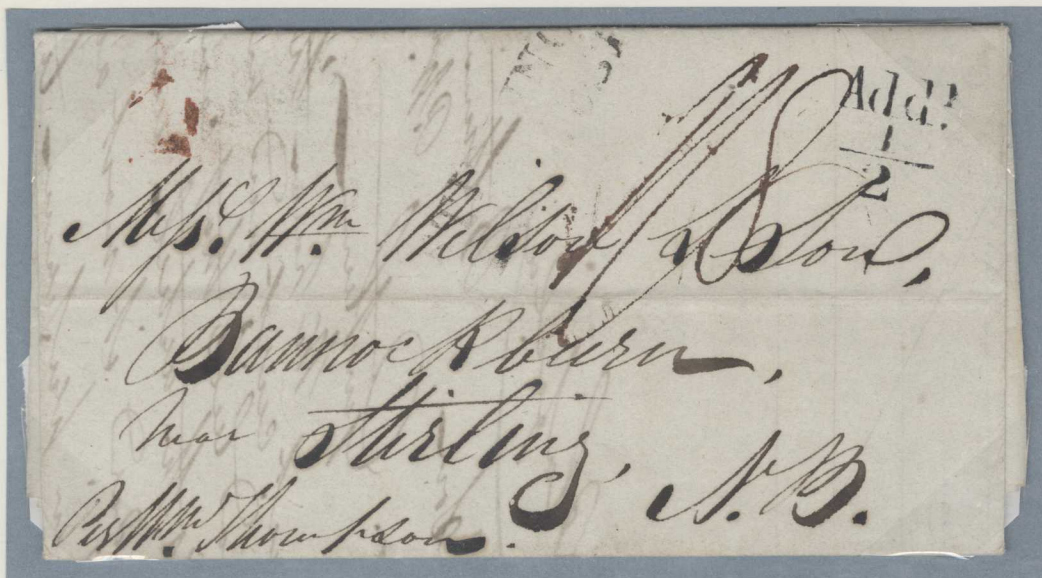 Add.l
1
2
Mess.rs Wm. Wilson & Son,
Bannockburn,
near Stirling,
N.B.
Per Wm. Thompson.